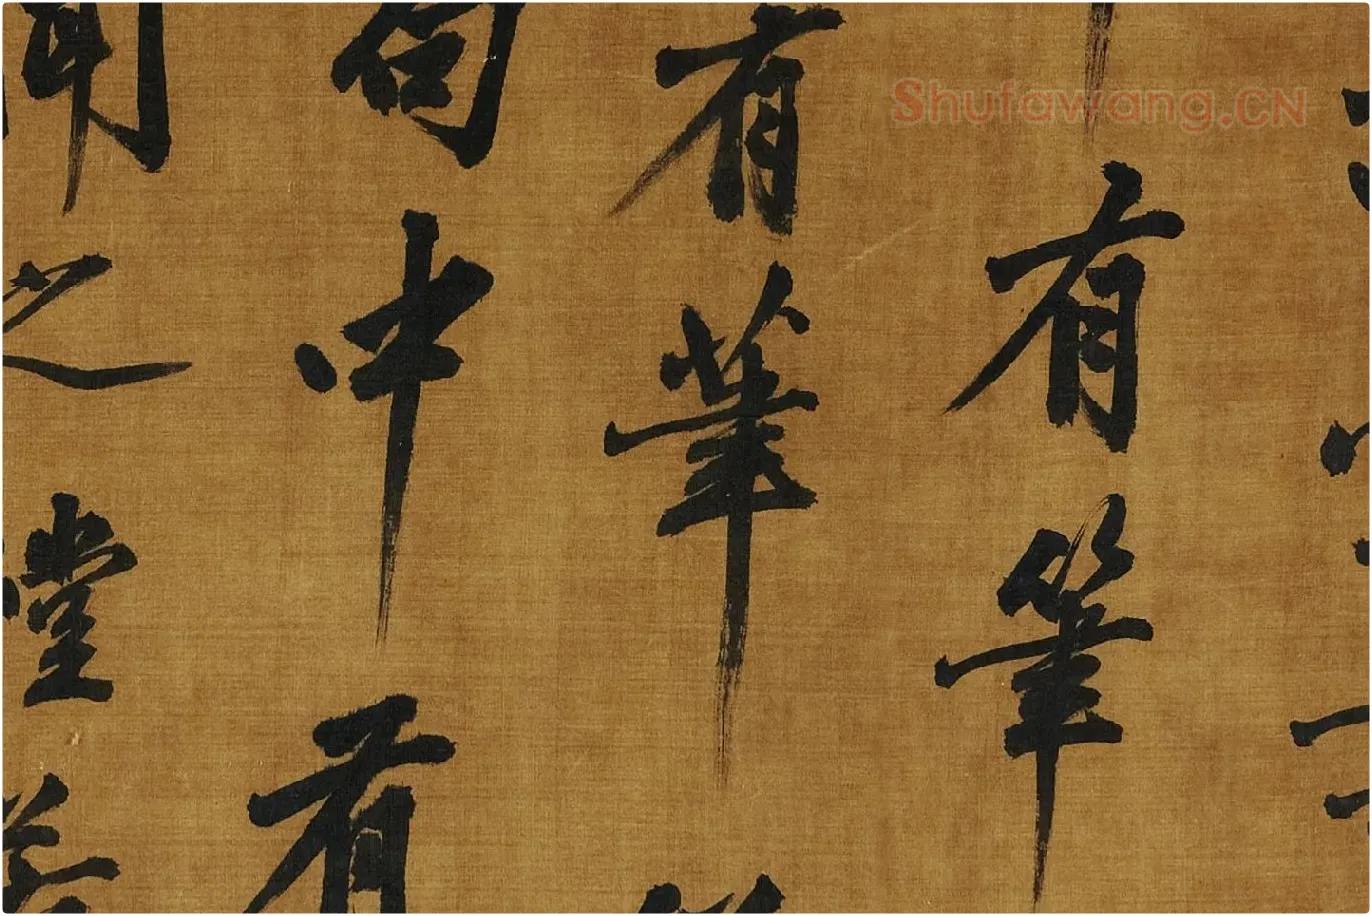 有筆
有筆
句中有
之堂
Shufawang.CN